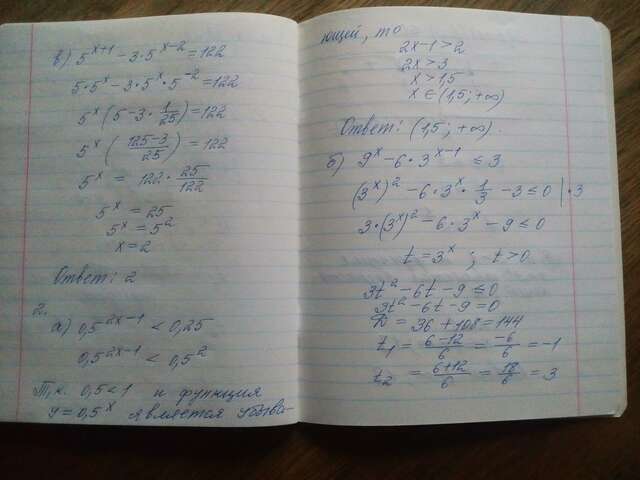 в) 5^(x+1) − 3·5^(x−2) = 122
5·5^x − 3·5^x·5^(−2) = 122
5^x (5 − 3·1/25) = 122
5^x ((125−3)/25) = 122
5^x = 122·25/122
5^x = 25
5^x = 5^2
x = 2
Ответ: 2
2.
а) 0,5^(2x−1) < 0,25
0,5^(2x−1) < 0,5^2
Т.к. 0,5<1 и функция
y = 0,5^x является убыва-
ющей, то
2x−1>2
2x>3
x>1,5
x ∈ (1,5; +∞)
Ответ: (1,5; +∞).
б) 9^x − 6·3^(x−1) ≤ 3
(3^x)^2 − 6·3^x·1/3 − 3 ≤ 0 |·3
3·(3^x)^2 − 6·3^x − 9 ≤ 0
t = 3^x ; t>0
3t^2 − 6t − 9 ≤ 0
3t^2 − 6t − 9 = 0
D = 36 + 108 = 144
t₁ = (6−12)/6 = −6/6 = −1
t₂ = (6+12)/6 = 18/6 = 3